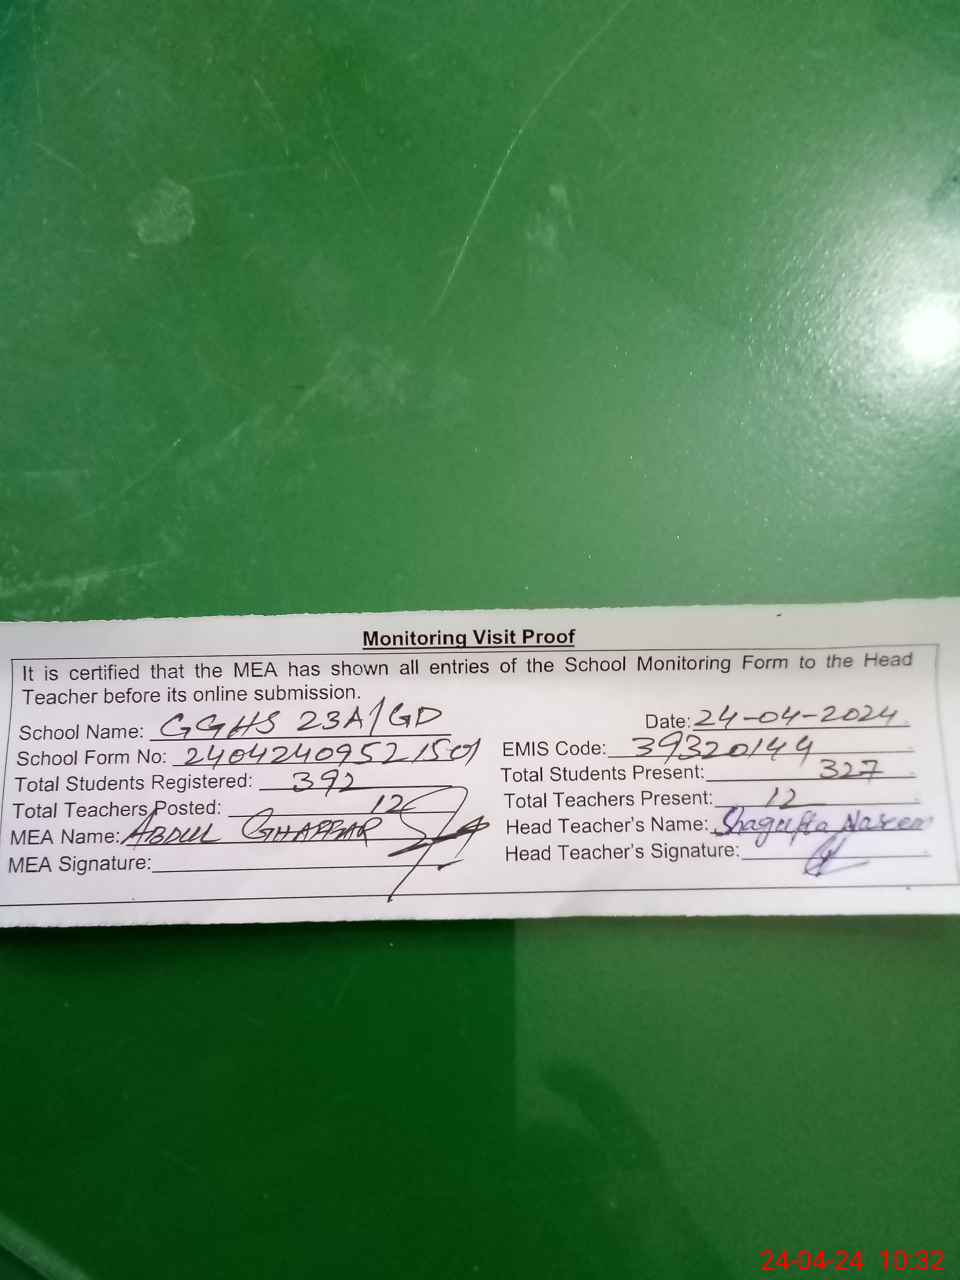 Monitoring Visit Proof
It is certified that the MEA has shown all entries of the School Monitoring Form to the Head
Teacher before its online submission.
School Name: GGHS 23A/GD Date: 24-04-2024
School Form No: EMIS Code: 39320144
Total Students Registered: 392 Total Students Present: 327
Total Teachers Posted: 12 Total Teachers Present: 12
MEA Name: ABDUL GHAFFAR Head Teacher's Name: Shagufta Nasreen
MEA Signature: Head Teacher's Signature:
24-04-24 10:32